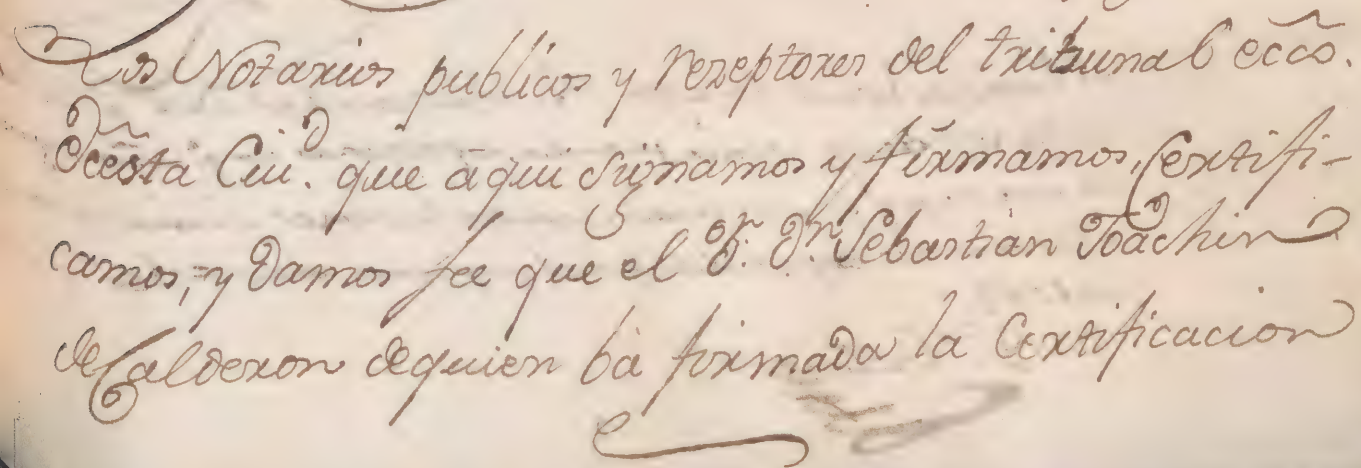 Los Notarios publicos y rezeptores del tribunal ecco.
Deesta Ciud. que aqui signamos y firmamos, Certifi-
camos, y damos fee que el Sr. Dn. Sebastian Joachin
de Calderon de quien ba firmada la Certificacion